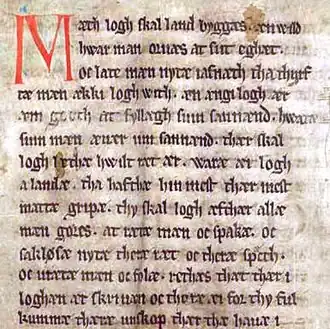 Mæth logh skal land byggæs. æn wild
hwar man ornæs at sit eghæt.
oc late mæn nytæ iafnæth tha thurf
tæ mæn ækki logh with. æn ængi logh ær
æm goth at fyllægh sum sannænd. hwaræ
sum mæn æuær um sannænd. thær skal
logh lethæ hwilt ret ær. waræ ær logh
a landæ. tha hafthæ hin mest thær mest
mattæ gripæ. thy skal logh æfthær allæ
mæn gøres. at rætæ mæn oc spakæ. oc
sakløsæ nytæ theræ ræt oc theræ spøcth.
oc urætæ mæn oc folæ. rethæs that thær i
loghæn ær skriuæn oc theræ ær for thy ful
kummæ theræ unskop thær the hauæ i